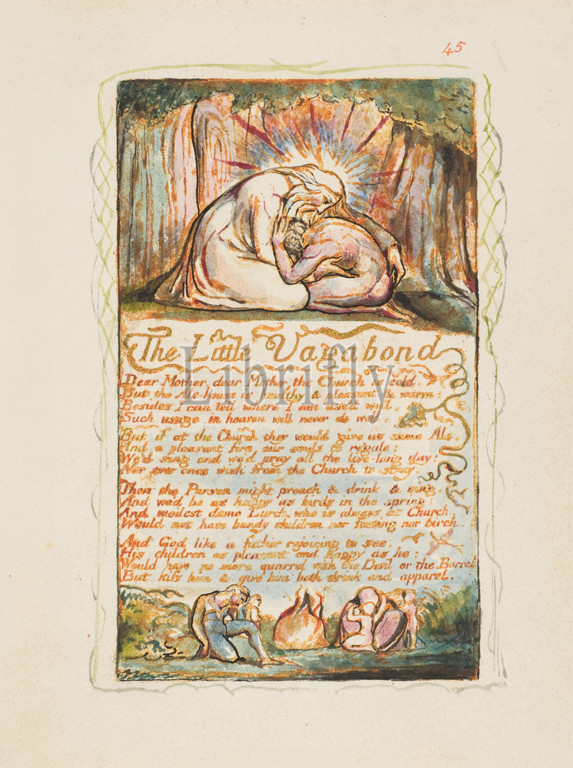 45
The Little Vagabond
Dear Mother, dear Mother, the Church is cold.
But the Ale-house is healthy & pleasant & warm;
Besides I can tell where I am used well.
Such usage in heaven will never do well.
But if at the Church they would give us some Ale.
And a pleasant fire, our souls to regale:
We'd sing and we'd pray all the live-long day:
Nor ever once wish from the Church to stray.
Then the Parson might preach & drink & sing.
And we'd be as happy as birds in the spring:
And modest dame Lurch, who is always at Church
Would not have bandy children nor fasting nor birch.
And God like a father rejoicing to see.
His children as pleasant and happy as he:
Would have no more quarrel with the Devil or the Barrel
But kiss him & give him both drink and apparel.
Librifly